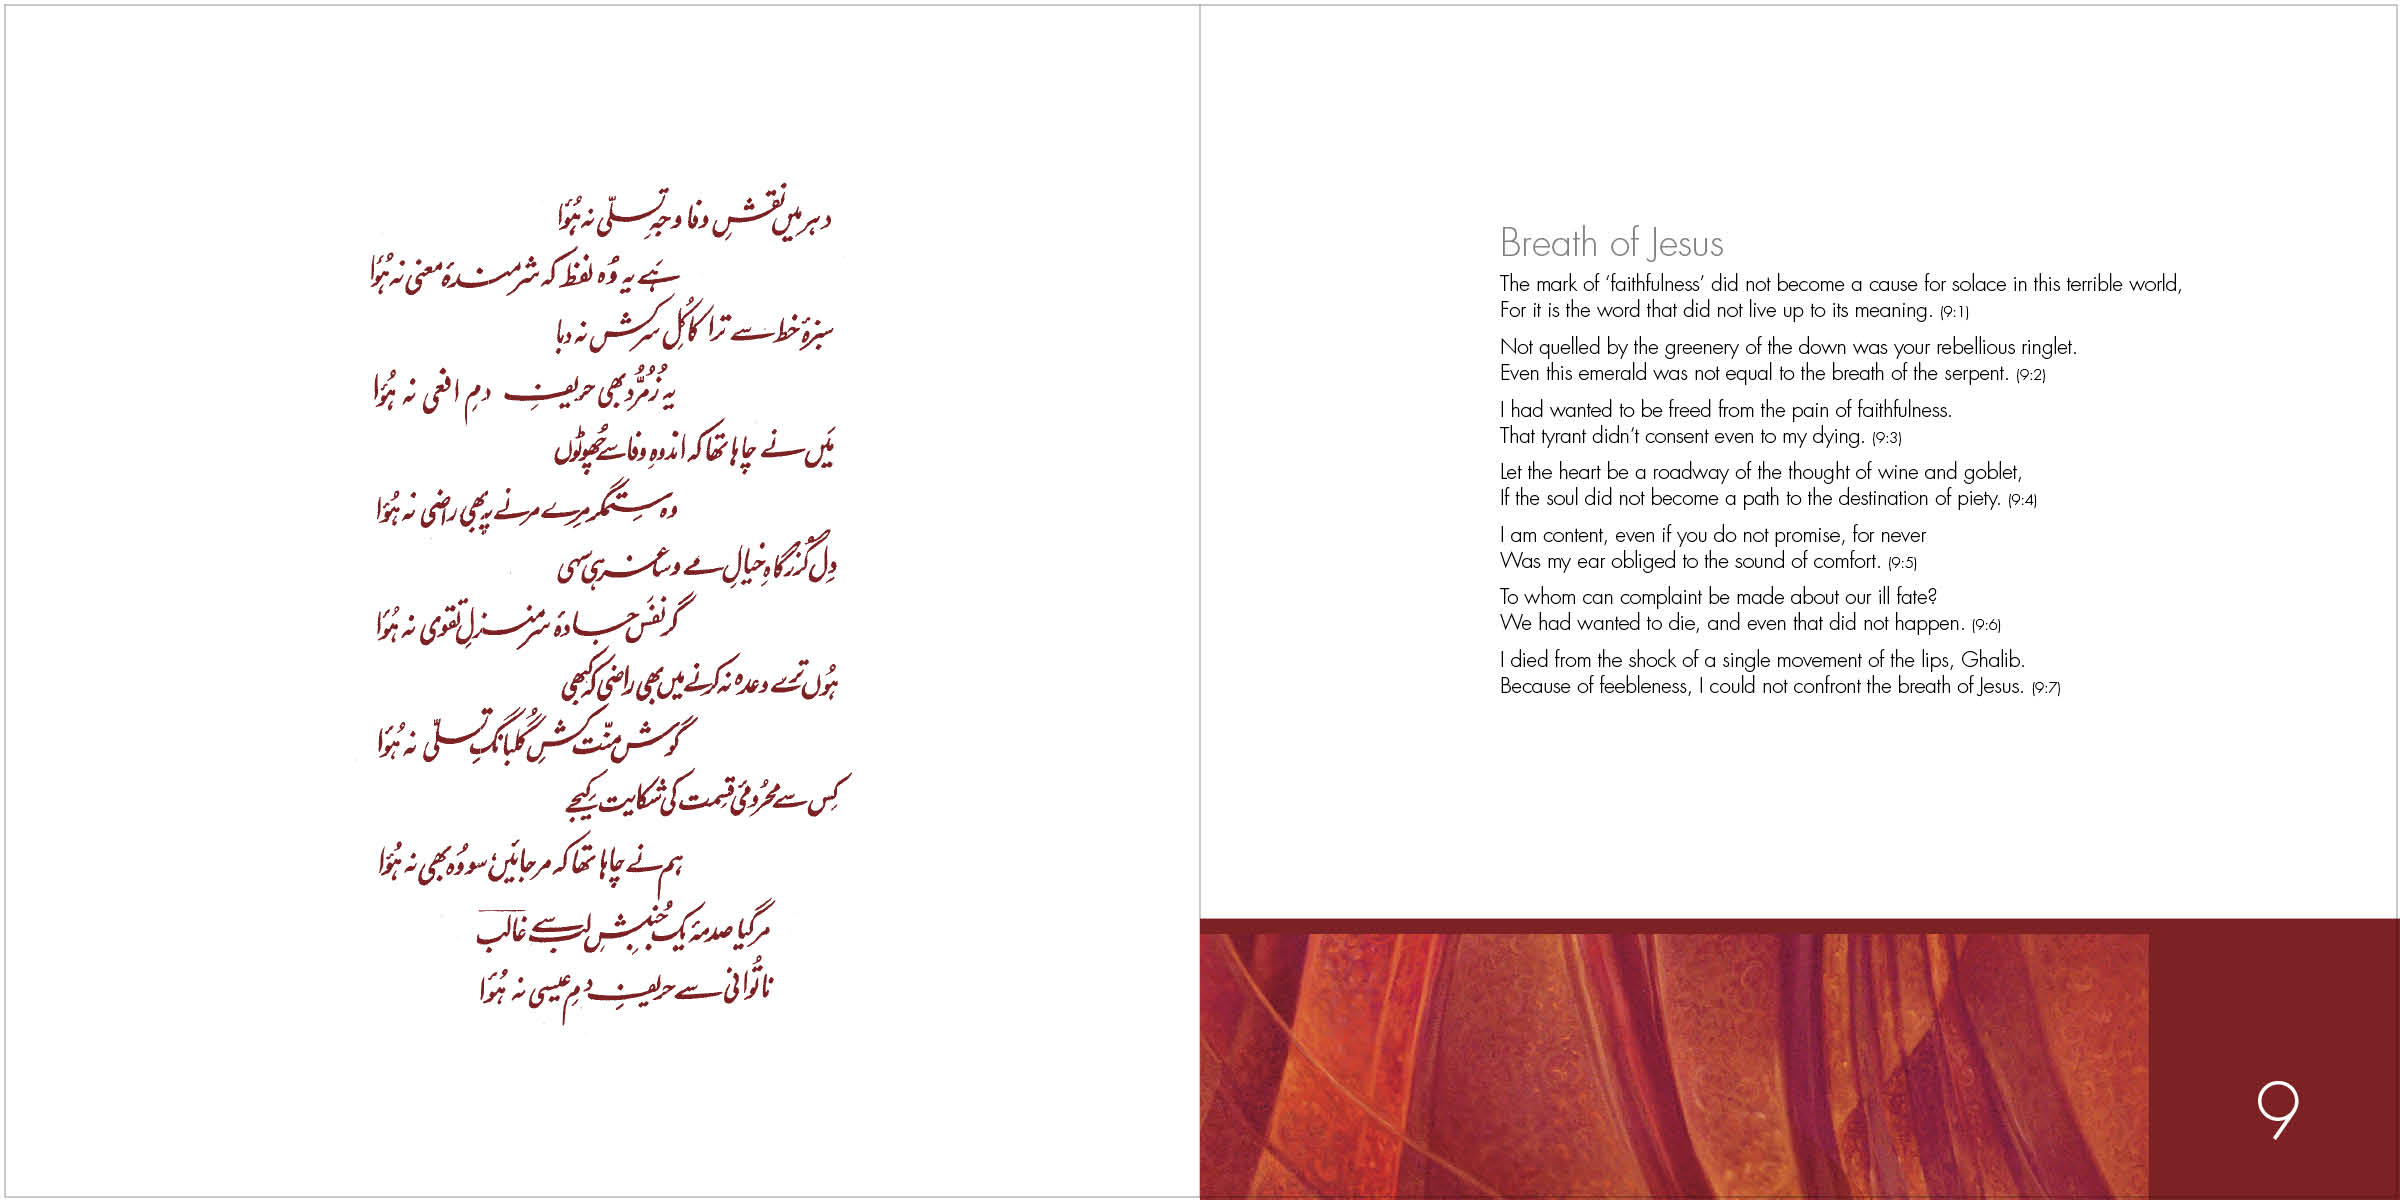 دہر میں نقشِ وفا وجہِ تسلّی نہ ہُوٗا
ہَے یہ وُہ لفظ کہ شرمندۂ معنی نہ ہُوٗا
سبزۂ خط سے ترا کاکُلِ سرکش نہ دبا
یہ زُمُرُّد بھی حریفِ دمِ افعی نہ ہُوٗا
مَیں نے چاہا تھا کہ اندوہِ وفا سے چُھوٹوں
وہ ستِمگر مِرے مرنے پہ بھی راضی نہ ہُوٗا
دِل گُزرگاہِ خیالِ مے و ساغر ہی سہی
گر نفَس جادۂ سرمنزلِ تقوی نہ ہُوٗا
ہُوں ترے وعدہ نہ کرنے میں بھی راضی کہ کبھی
گوش منّت کشِ گُلبانگِ تسلّی نہ ہُوٗا
کِس سے محرُومیٔ قِسمت کی شکایت کیجے
ہم نے چاہا تھا کہ مر جائیَں، سو وُہ بھی نہ ہُوٗا
مر گیا صدمۂ یک جُنبشِ لب سے غالب
ناتُوانی سے حریفِ دمِ عیسی نہ ہُوٗا
Breath of Jesus
The mark of ‘faithfulness’ did not become a cause for solace in this terrible world,
For it is the word that did not live up to its meaning. (9:1)
Not quelled by the greenery of the down was your rebellious ringlet.
Even this emerald was not equal to the breath of the serpent. (9:2)
I had wanted to be freed from the pain of faithfulness.
That tyrant didn’t consent even to my dying. (9:3)
Let the heart be a roadway of the thought of wine and goblet,
If the soul did not become a path to the destination of piety. (9:4)
I am content, even if you do not promise, for never
Was my ear obliged to the sound of comfort. (9:5)
To whom can complaint be made about our ill fate?
We had wanted to die, and even that did not happen. (9:6)
I died from the shock of a single movement of the lips, Ghalib.
Because of feebleness, I could not confront the breath of Jesus. (9:7)
9